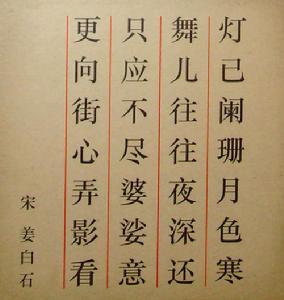 灯已阑珊月色寒
舞儿往往夜深还
只应不尽婆娑意
更向街心弄影看
宋 姜白石